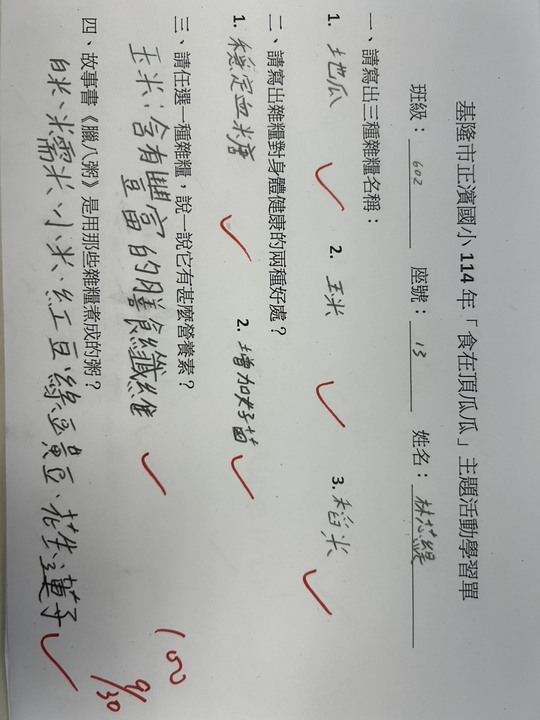 基隆市正濱國小 114 年「食在頂瓜瓜」主題活動學習單
班級：602 座號：13 姓名：林芯緹
一、請寫出三種雜糧名稱：
1. 地瓜 2. 玉米 3. 稻米
二、請寫出雜糧對身體健康的兩種好處？
1. 穩定血糖 2. 增加好菌
三、請任選一種雜糧，說一說它有甚麼營養素？
玉米：含有豐富的膳食纖維
四、故事書《臘八粥》是用那些雜糧煮成的粥？
白米、糯米、小米、紅豆、綠豆、黃豆、花生、蓮子
100
9/30